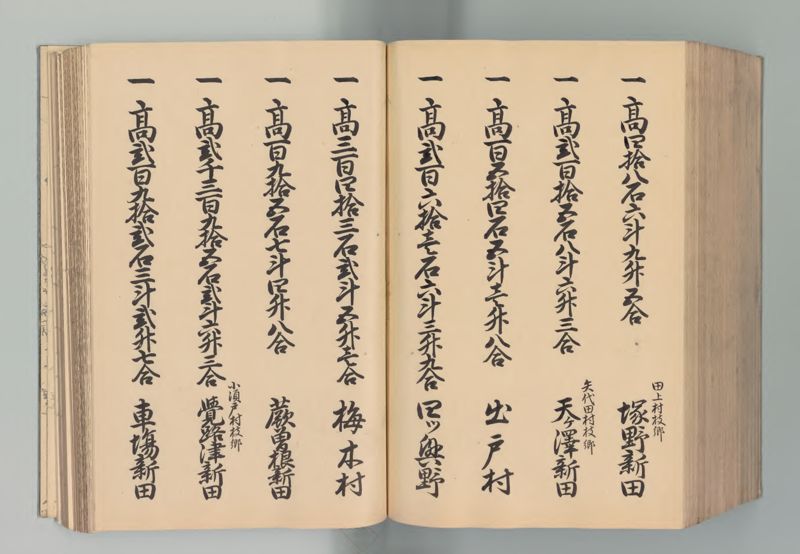 一 高四拾八石六斗九升五合
田上村枝郷
塚野新田
一 高弐百拾五石八斗六升三合
矢代田村枝郷
天ヶ澤新田
一 高百五拾四石五斗壱升八合 出戸村
一 高弐百六拾壱石六斗三升九合 四ッ興野
一 高三百四拾三石弐斗五升壱合 梅木村
一 高百九拾五石七斗四升八合 蕨曽根新田
一 高弐千三百九拾五石弐斗六升三合
小須戸村枝郷
覚路津新田
一 高弐百九拾弐石三斗弐升七合 車場新田